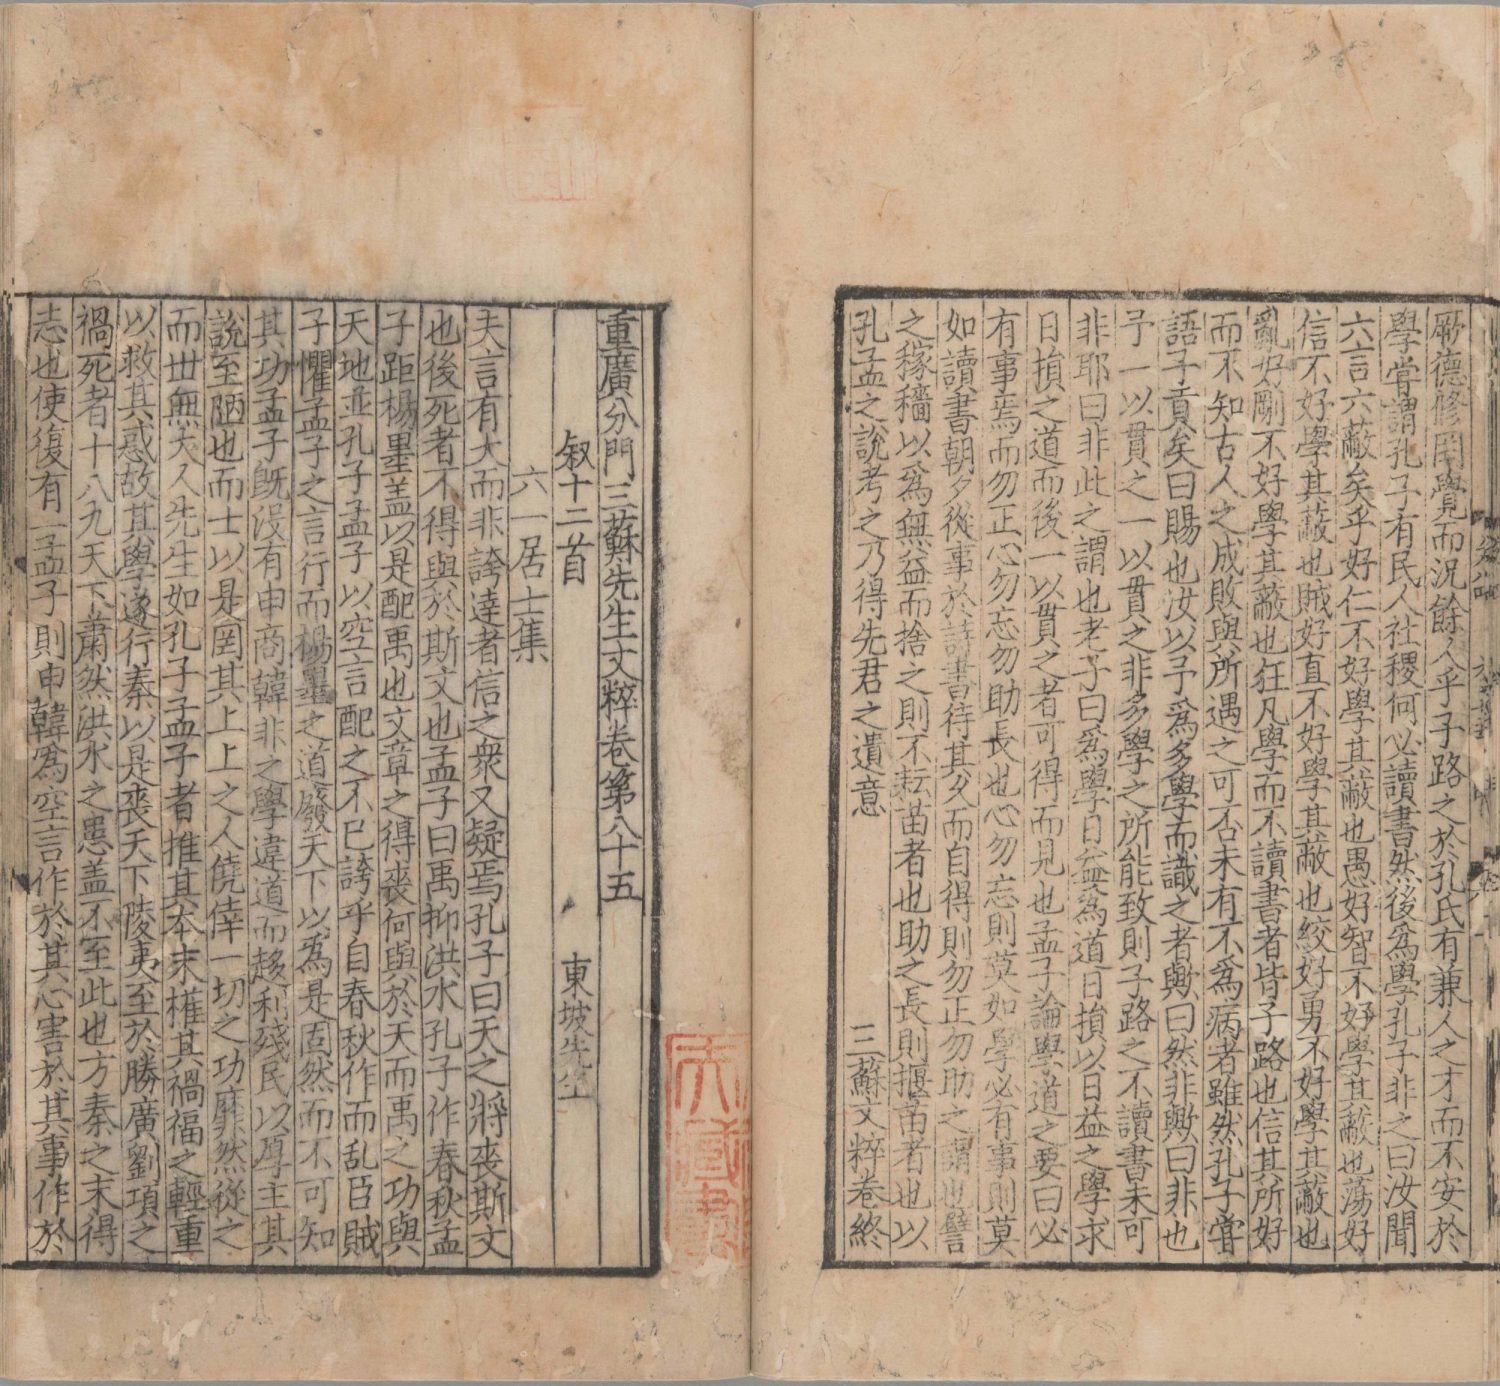 厥德修罔覺而況餘人乎子路之於孔氏有兼人之才而不安於
學嘗謂孔子有民人社稷何必讀書然後爲學孔子非之曰汝聞
六言六蔽矣乎好仁不好學其蔽也愚好智不好學其蔽也蕩好
信不好學其蔽也賊好直不好學其蔽也絞好勇不好學其蔽也
亂好剛不好學其蔽也狂凡學而不讀書者皆子路也信其所好
而不知古人之成敗與所遇之可否未有不爲病者雖然孔子嘗
語子貢矣曰賜也汝以予爲多學而識之者歟曰然非歟曰非也
予一以貫之一以貫之非多學之所能致則子路之不讀書未可
非耶曰非此之謂也老子曰爲學日益爲道日損以日益之學求
日損之道而後一以貫之者可得而見也孟子論學道之要曰必
有事焉而勿正心勿忘勿助長也心勿忘則莫如學必有事則莫
如讀書朝夕從事於詩書待其久而自得則勿正勿助之謂也譬
之稼穡以爲無益而捨之則不耘苗者也助之長則揠苗者也以
孔孟之說考之乃得先君之遺意
三蘇文粹卷終
重廣分門三蘇先生文粹卷第八十五
叙十二首 東坡先生
六一居士集
夫言有大而非誇達者信之衆又疑焉孔子曰天之將丧斯文
也後死者不得與於斯文也孟子曰禹抑洪水孔子作春秋孟
子距楊墨盖以是配禹也文章之得丧何與於天而禹之功與
天地並孔子孟子以空言配之不已誇乎自春秋作而乱臣賊
子懼孟子之言行而楊墨之道廢天下以爲是固然而不可知
其功孟子旣沒有申商韓非之學違道而趍利殘民以厚主其
說至陋也而士以是罔其上上之人僥倖一切之功靡然從之
而世無大人先生如孔子孟子者推其本末權其禍福之輕重
以救其惑故其學遂行秦以是丧天下陵夷至於勝廣劉項之
禍死者十八九天下蕭然洪水之患盖不至此也方秦之未得
志也使復有一孟子則申韓爲空言作於其心害於其事作於